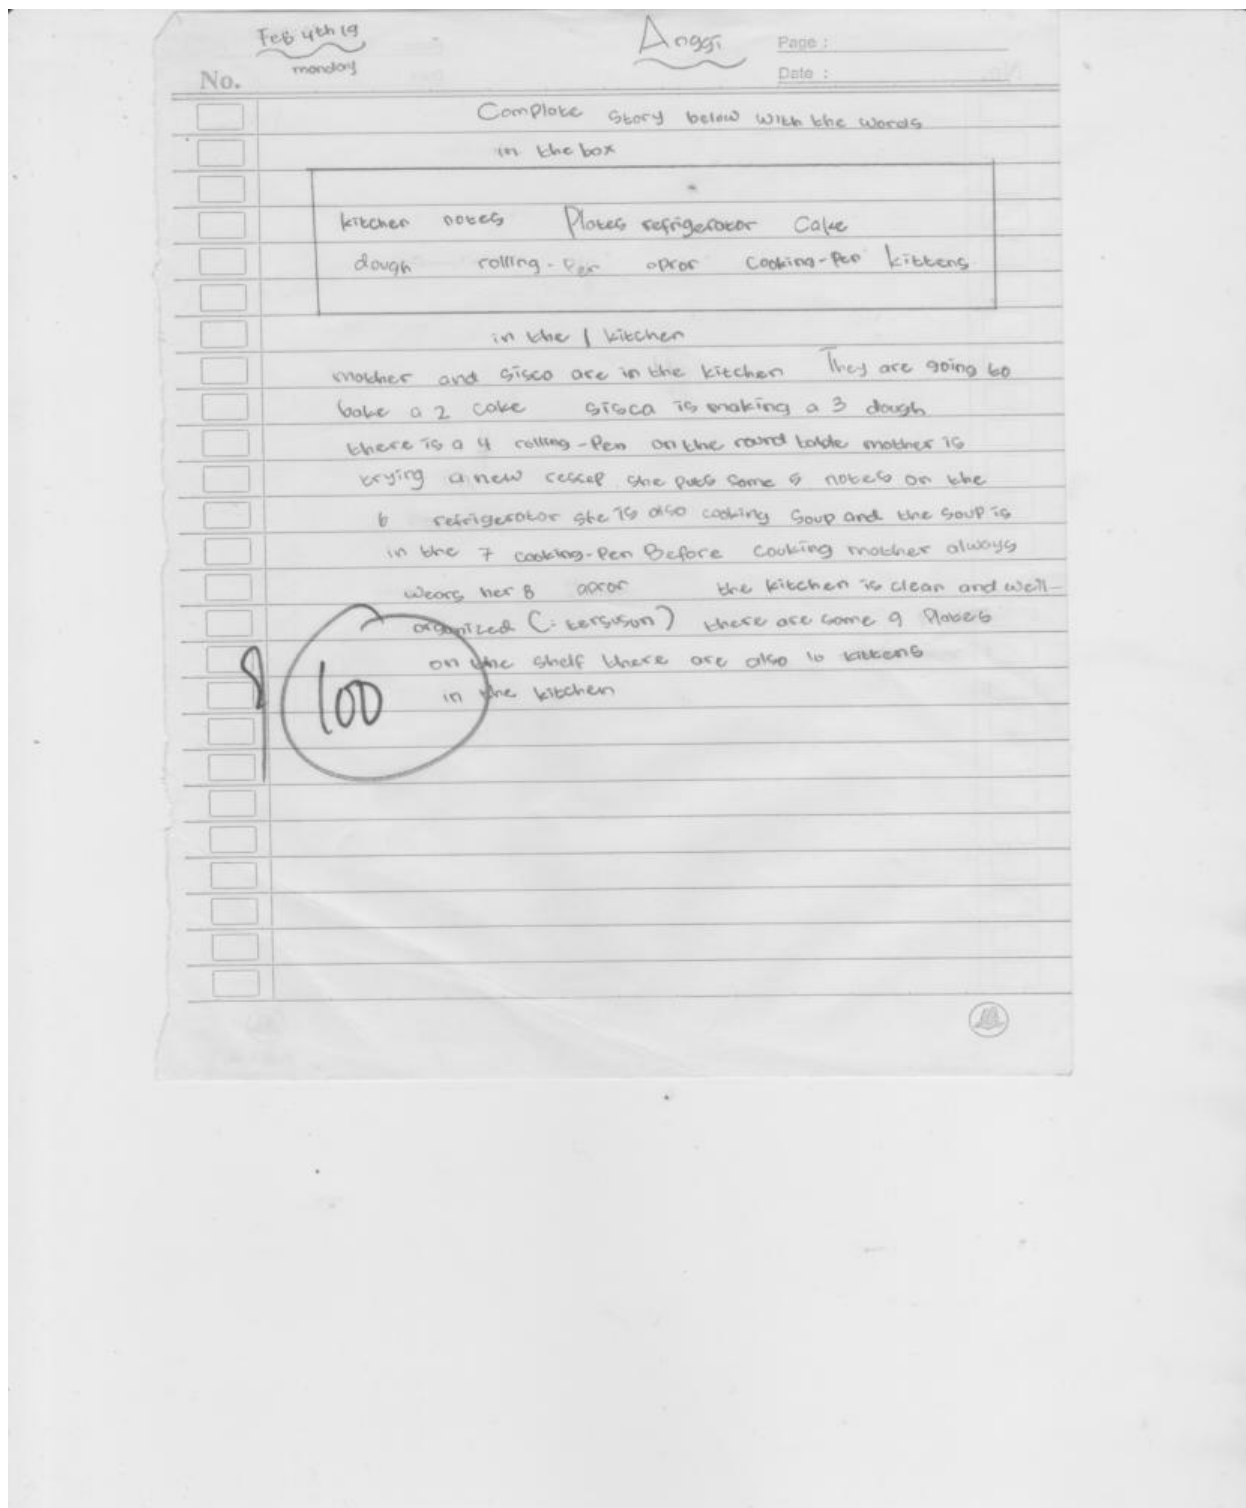 Feb 4th 19
monday
Anggi
Page :
Date :
No.
Complate story below with the words
in the box
kitchen notes Plates refrigerator Cake
dough rolling-Pen apror Cooking-Pen kittens
in the 1 kitchen
mother and sisca are in the kitchen They are going to
bake a 2 cake sisca is making a 3 dough
there is a 4 rolling-Pen on the round table mother is
trying a new she puts some 5 notes on the
6 refrigerator she is also cooking Soup and the soup is
in the 7 cooking-Pen Before cooking mother always
wears her 8 apror the kitchen is clean and well-
organized (: tersusun) there are some 9 Plates
on the shelf there are also 10 kittens
in the kitchen
100